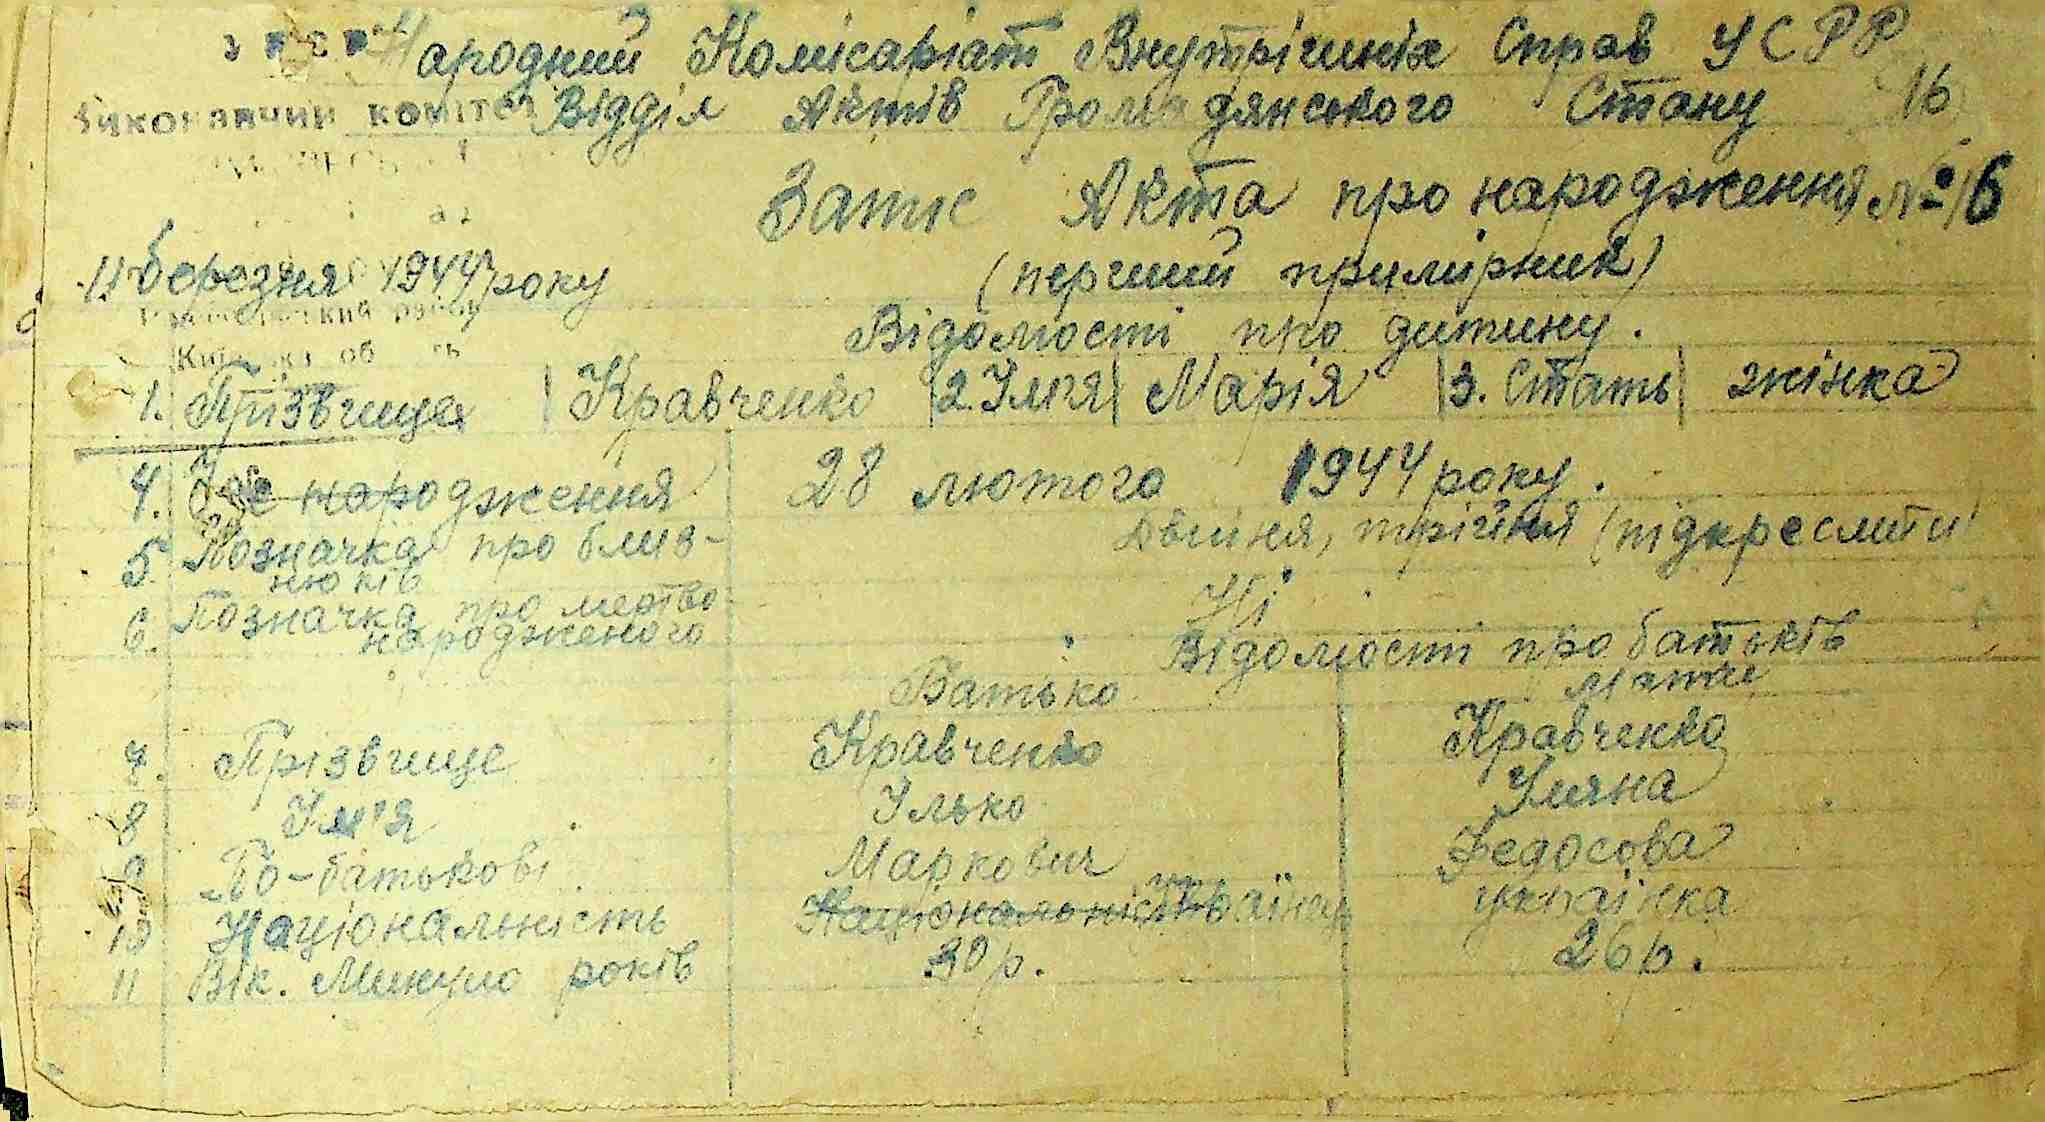 Народний Комісаріат Внутрішніх Справ УСРР
Виконавчий комітет Відділ Актів Громадянського Стану 16
Запис Акта про народження № 16
11 березня 1944 року (перший примірник)
Відомості про дитину.
1. Прізвище Кравченко 2. Ім'я Марія 3. Стать жінка
4. Час народження 28 лютого 1944 року.
5. Позначка про близ- Двійня, трійня (підкреслити
нюків
6. Позначка про мертво- Ні
народженого
Відомості про батьків
Батько Мати
7. Прізвище Кравченко Кравченко
8 Ім'я Улько Уляна
9 По-батькові Маркович Федосова
10 Національність Національність українка
11 Вік. Минуло років 30 р. 26 р.